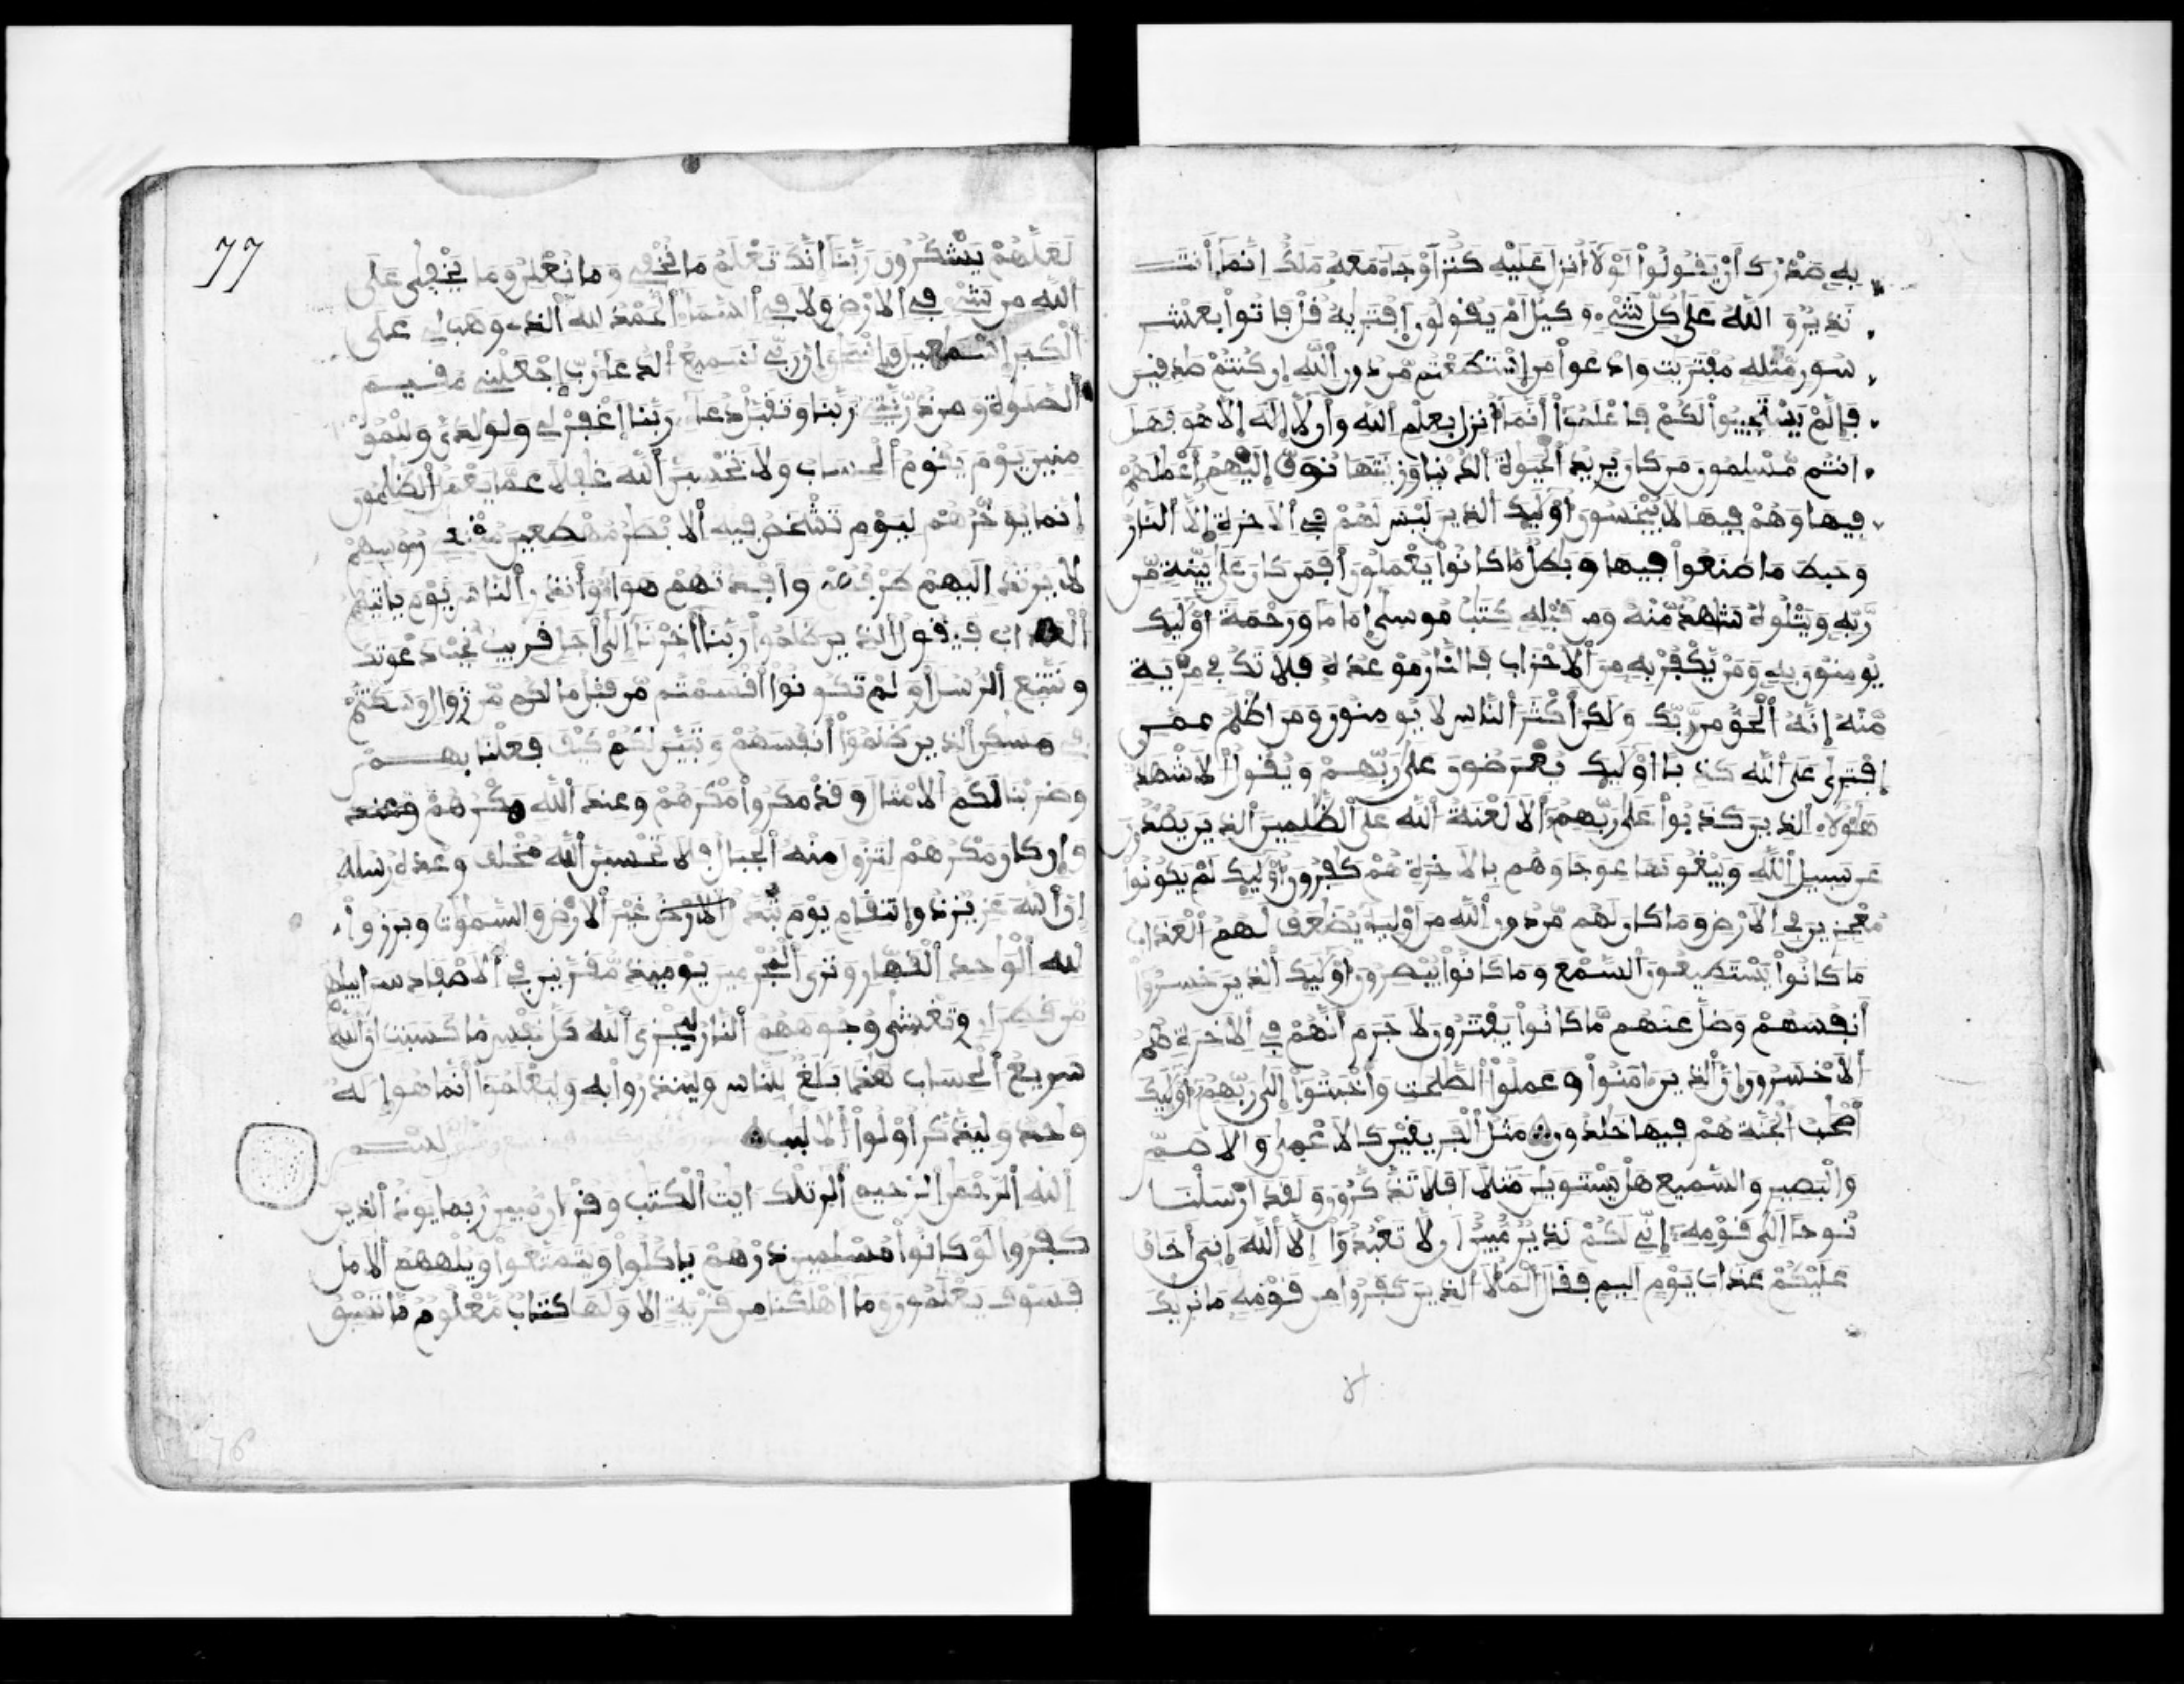 به صدرك أن يقولوا لولا أنزل عليه كنز أو جاء معه ملك إنما أنت
نذير والله على كل شيء وكيل أم يقولون افتريه قل فاتوا بعشر
سور مثله مفتريت وادعوا من استطعتم من دون الله إن كنتم صدقين
فإلم يستجيبوا لكم فاعلموا أنما أنزل بعلم الله وأن لا إله إلا هو فهل
أنتم مسلمون من كان يريد الحيوة الدنيا وزينتها نوف إليهم أعملهم
فيها وهم فيها لا يبخسون أوليك الذين ليس لهم في الاخرة إلا النار
وحبط ما صنعوا فيها وبطل ما كانوا يعملون أفمن كان على بينة من
ربه ويتلوه شاهد منه ومن قبله كتب موسى إماما ورحمة أوليك
يومنون به ومن يكفر به من الاحزاب فالنار موعده فلا تك في مرية
منه إنه الحق من ربك ولكن أكثر الناس لا يومنون ومن اظلم ممن
إفترى على الله كذبا أوليك يعرضون على ربهم ويقول الاشهد
هؤلاء الذين كذبوا على ربهم ألا لعنة الله على الظلمين الذين يصدون
عن سبيل الله ويبغونها عوجا وهم بالاخرة هم كفرون أوليك لم يكونوا
معجزين في الارض وما كان لهم من دون الله من أولياء يضعف لهم العذاب
ما كانوا يستطيعون السمع وما كانوا يبصرون أوليك الذين خسروا
أنفسهم وضل عنهم ما كانوا يفترون لا جرم أنهم في الاخرة هم
الاخسرون إن الذين امنوا وعملوا الصلحت وأخبتوا إلى ربهم أوليك
أصحب الجنة هم فيها خلدون مثل الفريقين كالاعمى والاصم
والبصير والسميع هل يستوين مثلا أفلا تذكرون ولقد ارسلنا
نوحا إلى قومه إني لكم نذير مبين أن لا تعبدوا إلا الله إني أخاف
عليكم عذاب يوم اليم فقال الملأ الذين كفروا من قومه ما نريك
77
لعلهم يشكرون ربنا إنك تعلم ما نخفي وما نعلن وما يخفى على
الله من شيء في الارض ولا في السماء الحمد لله الذي وهب لي على
الكبر إسمعيل وإسحق إن ربي لسميع الدعاء رب إجعلني مقيم
الصلوة ومن ذريتي ربنا وتقبل دعاء ربنا إغفر لي ولولدي وللمو
منين يوم يقوم الحساب ولا تحسبن الله غفلا عما يعمل الظلمون
إنما يوخرهم ليوم تشخص فيه الابصر مهطعين مقنعي رءوسهم
لا يرتد إليهم طرفهم وأفدتهم هواء وأنذر الناس يوم ياتيهم
العذاب فيقول الذين ظلموا ربنا أخرنا إلى أجل قريب نجب دعوتك
ونتبع الرسل أو لم تكونوا أقسمتم من قبل ما لكم من زوال وسكنتم
في مسكن الذين ظلموا أنفسهم وتبين لكم كيف فعلنا بهم
وضربنا لكم الامثال وقد مكروا مكرهم وعند الله مكرهم وعند
وإن كان مكرهم لتزول منه الجبال فلا تحسبن الله مخلف وعده رسله
إن الله عزيز ذو انتقام يوم تبدل الارض غير الارض والسموت وبرزوا
لله الوحد القهار وترى المجرمين يوميذ مقرنين في الاصفاد سرابيلهم
من قطران وتغشى وجوههم النار ليجزي الله كل نفس ما كسبت إن الله
سريع الحساب هذا بلغ للناس ولينذروا به وليعلموا أنما هو إله
وحد وليذكر أولوا الالبب بسم
الله الرحمن الرحيم ألر تلك ايت الكتب وقرءان مبين ربما يود الذين
كفروا لو كانوا مسلمين ذرهم ياكلوا ويتمتعوا ويلههم الامل
فسوف يعلمون وما أهلكنا من قرية إلا ولها كتاب معلوم ما تسبق
76